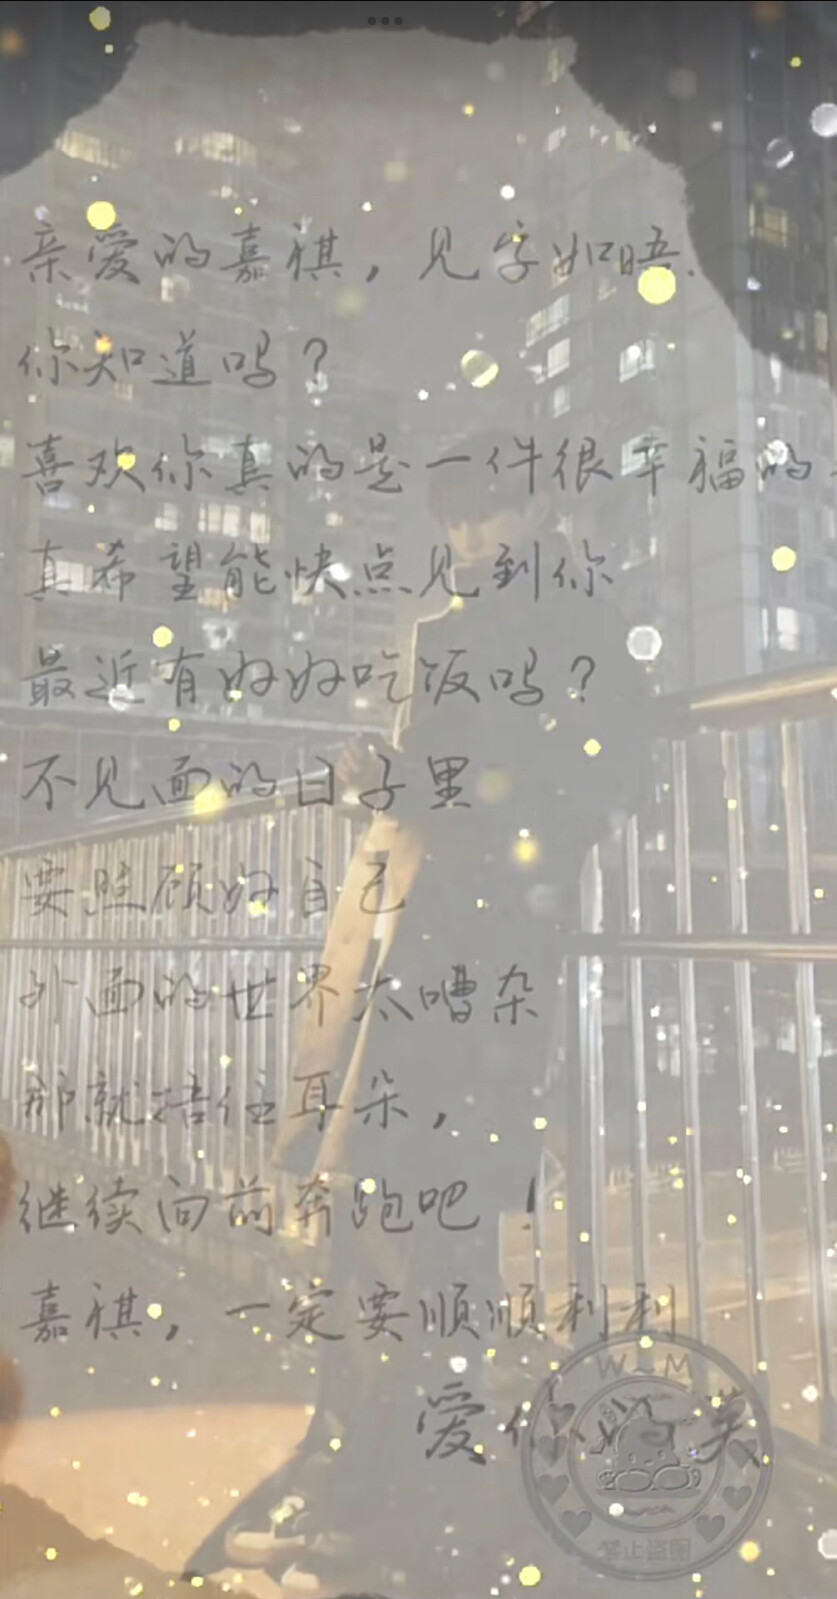 亲爱的嘉祺，见字如晤.
你知道吗？
喜欢你真的是一件很幸福的
真希望能快点见到你
最近有好好吃饭吗？
不见面的日子里
要照顾好自己
外面的世界太嘈杂
那就捂住耳朵，
继续向前奔跑吧！
嘉祺，一定要顺顺利利
爱你的
W~M
禁止盗图